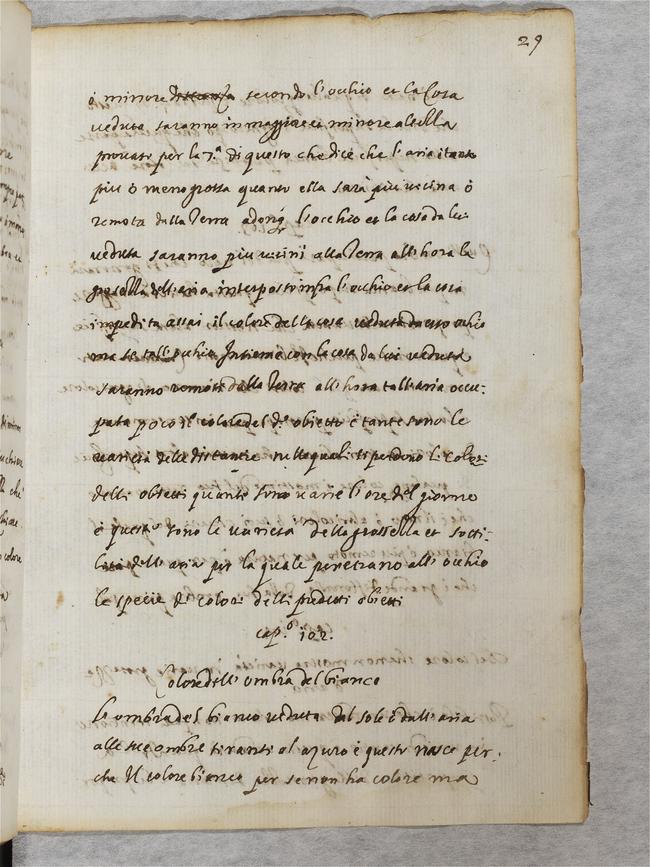 29
ò minore distanza secondo l'occhio et la Cosa
veduta saranno in maggiore ò minore altezza
provasi per la 7.ª di questo che dice che l'aria è tanto
piu ò meno grossa quanto ella sarà piu vicina ò
remota dalla Terra adonq. l'occhio et la cosa da lui
veduta saranno piu vicini alla Terra all'hora la
grossezza dell'aria interposta infra l'occhio et la cosa
impedita assai il colore della cosa veduta da esso ochio
ma se tall'ochio Insieme con la cosa da lui veduta
saranno remoti dalla Terra all'hora tall'aria occu-
pata poco il colore del d.º obietto è tante sono le
varietà delle distantie nelle quali si perdono li colori
delli obietti quante sono varie l'ore del giorno
è queste sono le varietà della grossezza et sotti-
lità dell'aria per la quale penetrano all'occhio
le specie de colori delli predetti obietti
cap.º 102.
Colore dell'ombra del bianco
l'ombra del bianco veduta dal sole è dall'aria
alle sue ombre tiranti al azuro è questo nasce per-
che Il colore bianco per se non ha colore ma